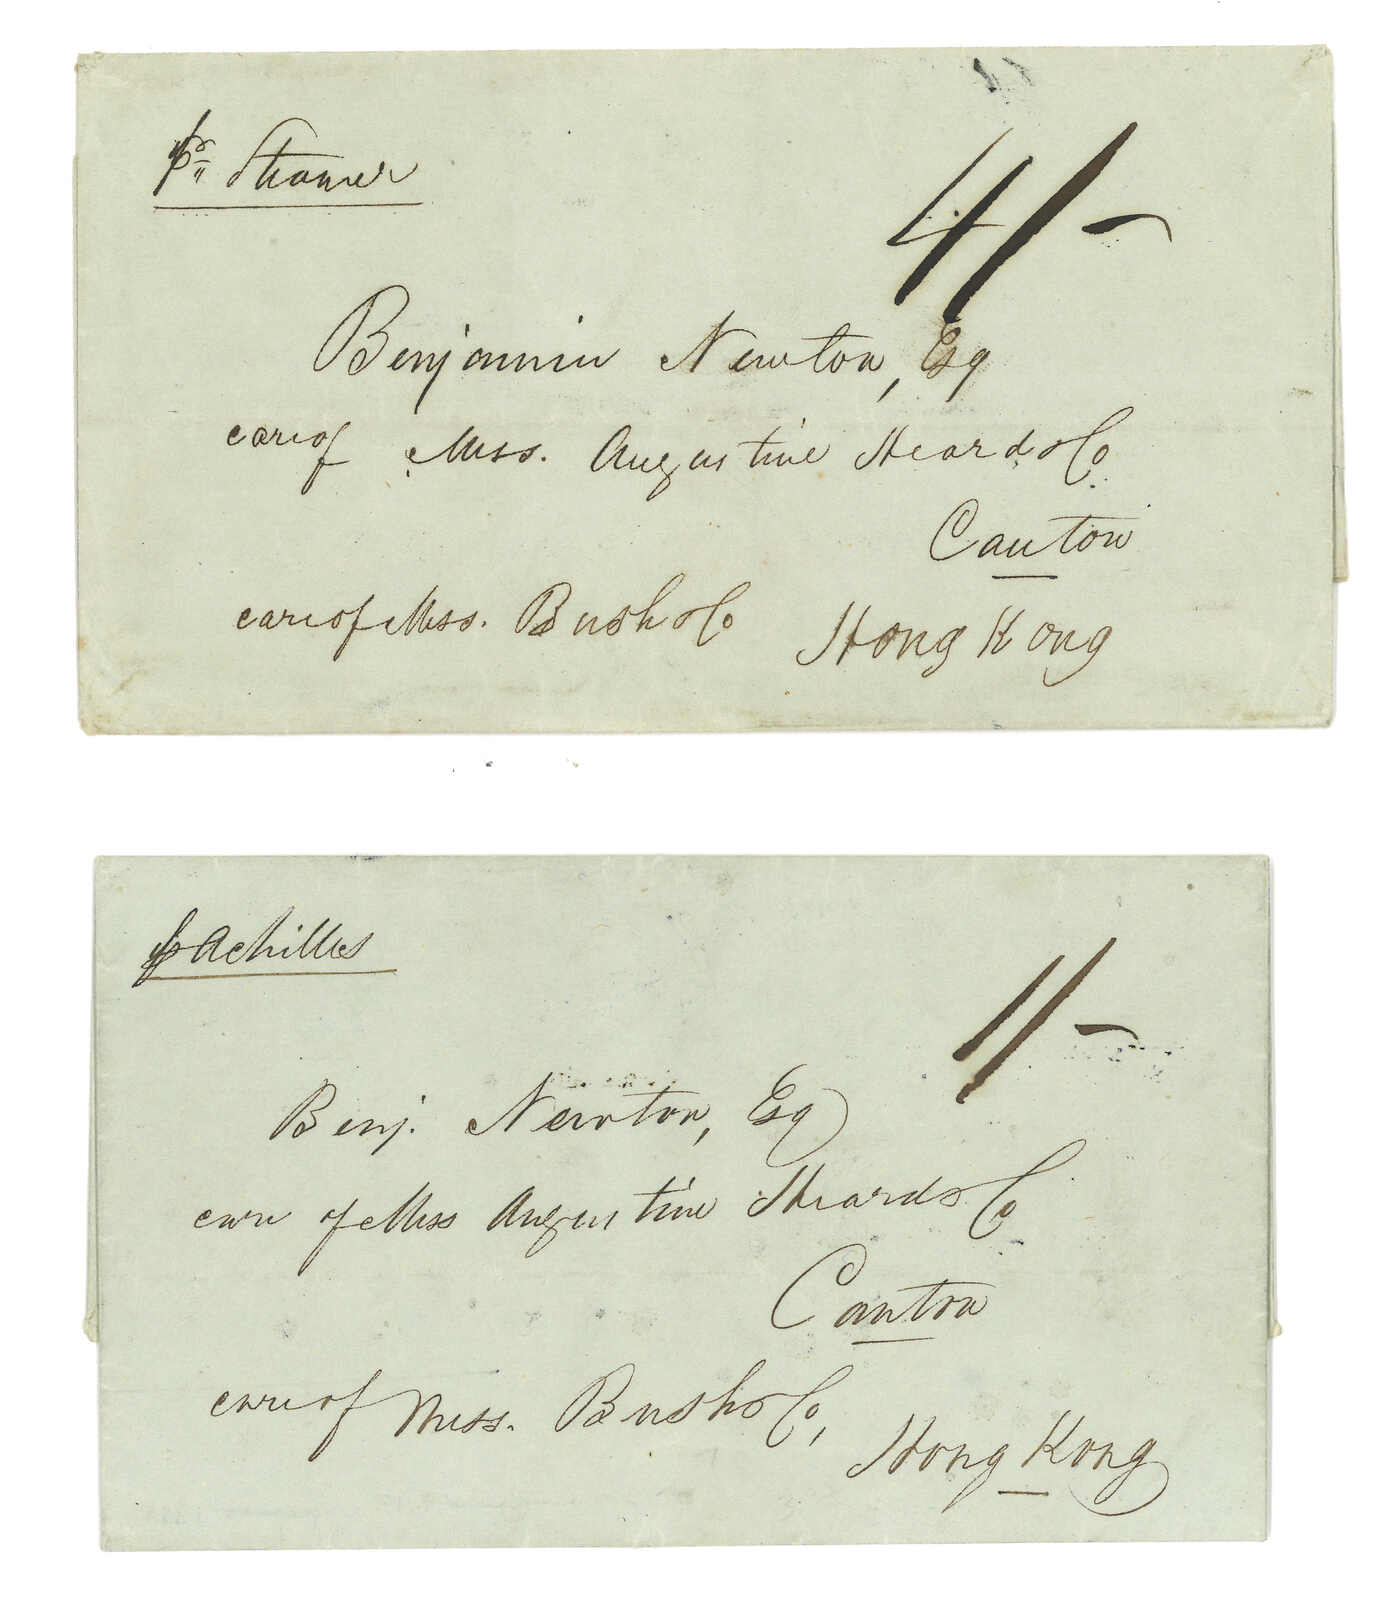 pr Steamer
4/-
Benjamin Newton, Esq
care of Mess. Augustine Heard & Co
Canton
care of Mess. Bush & Co Hong Kong
p Achilles
1/-
Benj. Newton, Esq
care of Mess Augustine Heard & Co
Canton
care of Mess. Bush & Co, Hong Kong